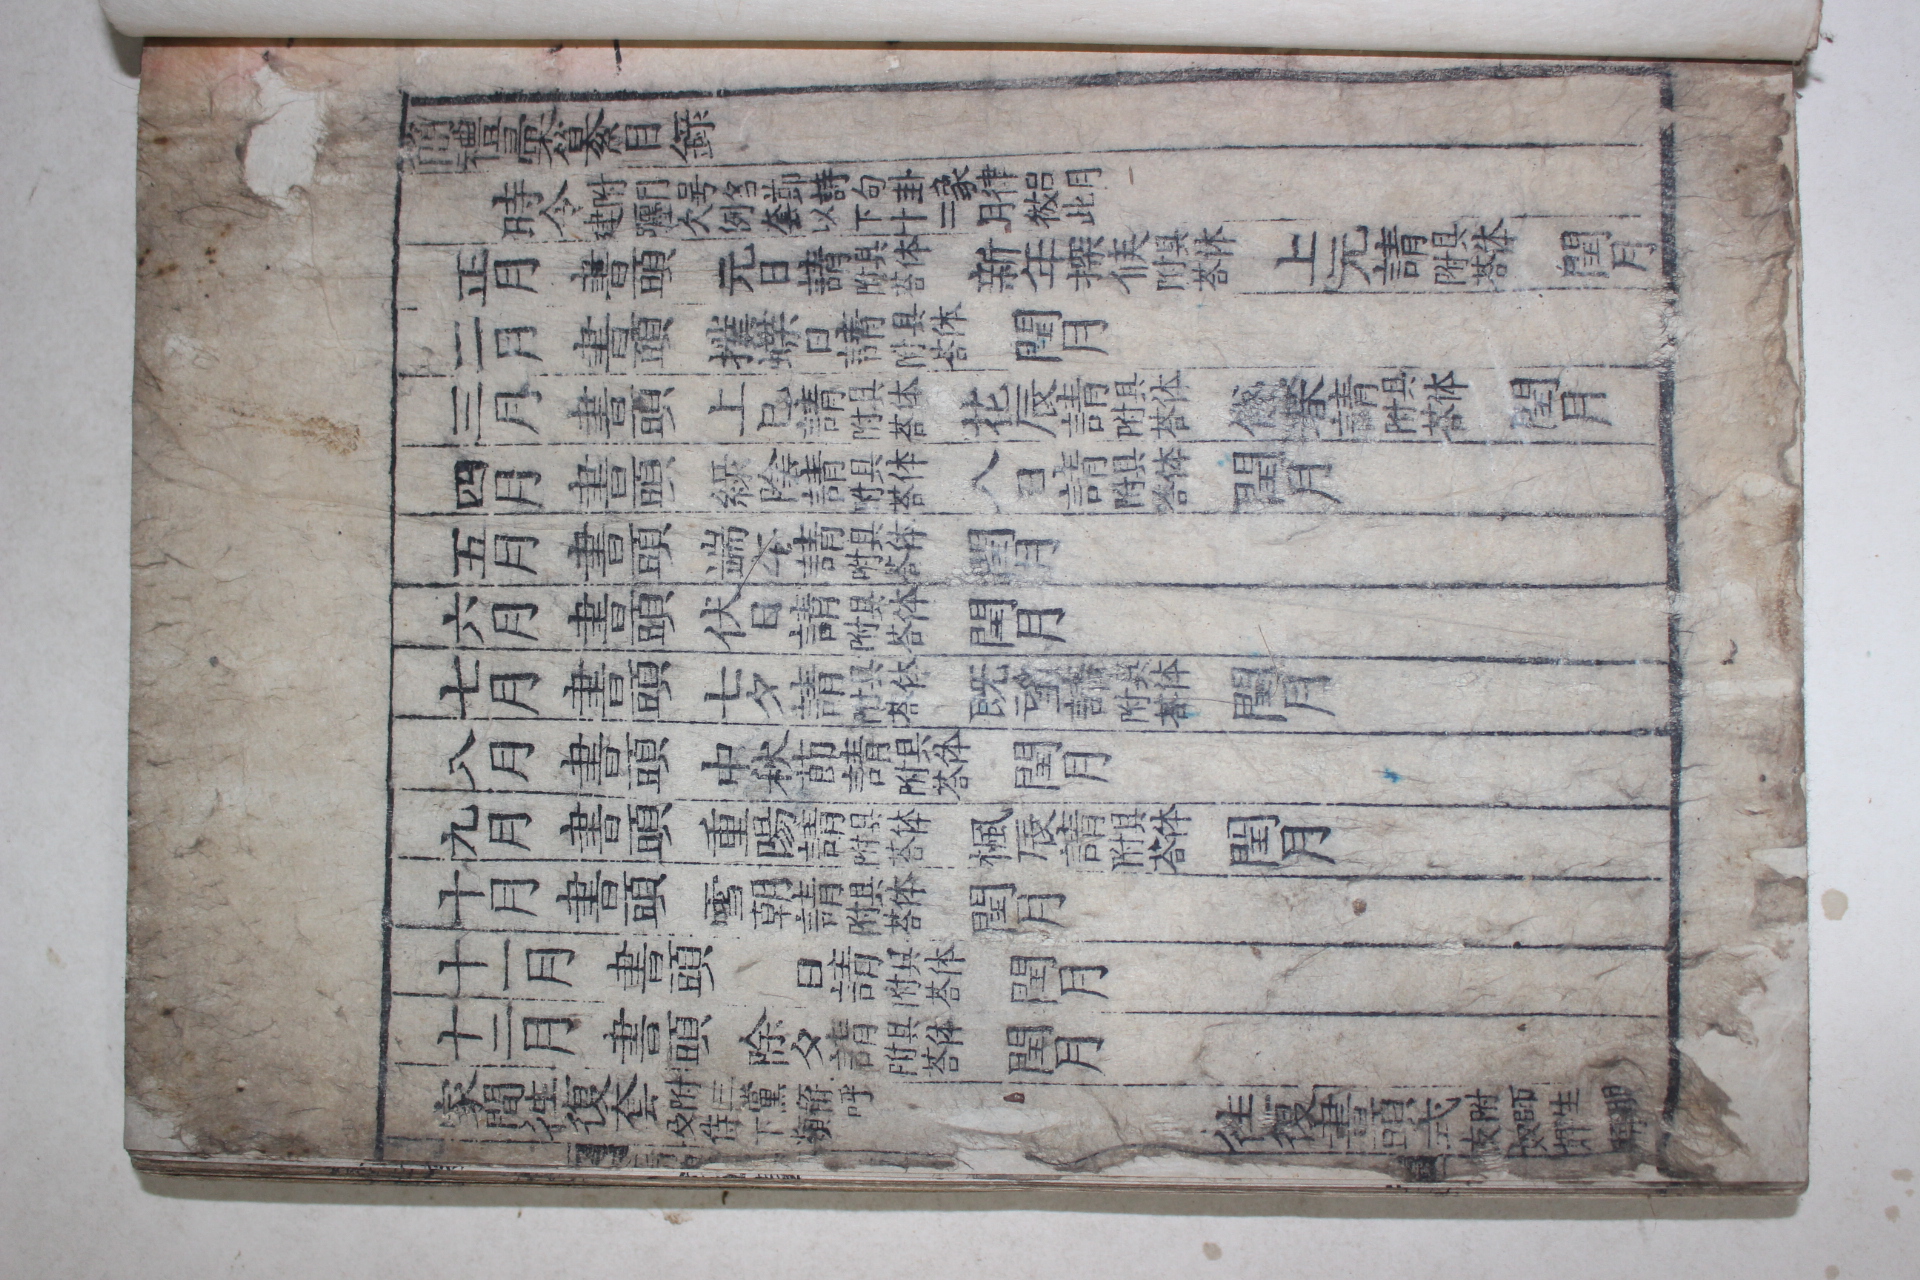 簡禮彙纂目錄
時令
正月 書頭 元日請 附具答体 新年探候 附具答体 上元請 附具答体 閏月
二月 書頭 日請 附具答体 閏月
三月 書頭 上巳請 附具答体 花辰請 附具答体 請 附具答体 閏月
四月 書頭 綠陰請 附具答体 八日請 附具答体 閏月
五月 書頭 端午請 附具答体 閏月
六月 書頭 伏日請 附具答体 閏月
七月 書頭 七夕請 附具答体 旣望請 附具答体 閏月
八月 書頭 中秋節請 附具答体 閏月
九月 書頭 重陽請 附具答体 楓辰請 附具答体 閏月
十月 書頭 雪朝請 附具答体 閏月
十一月 書頭 日請 附具答体 閏月
十二月 書頭 除夕請 附具答体 閏月
家間往復套 往復書頭式